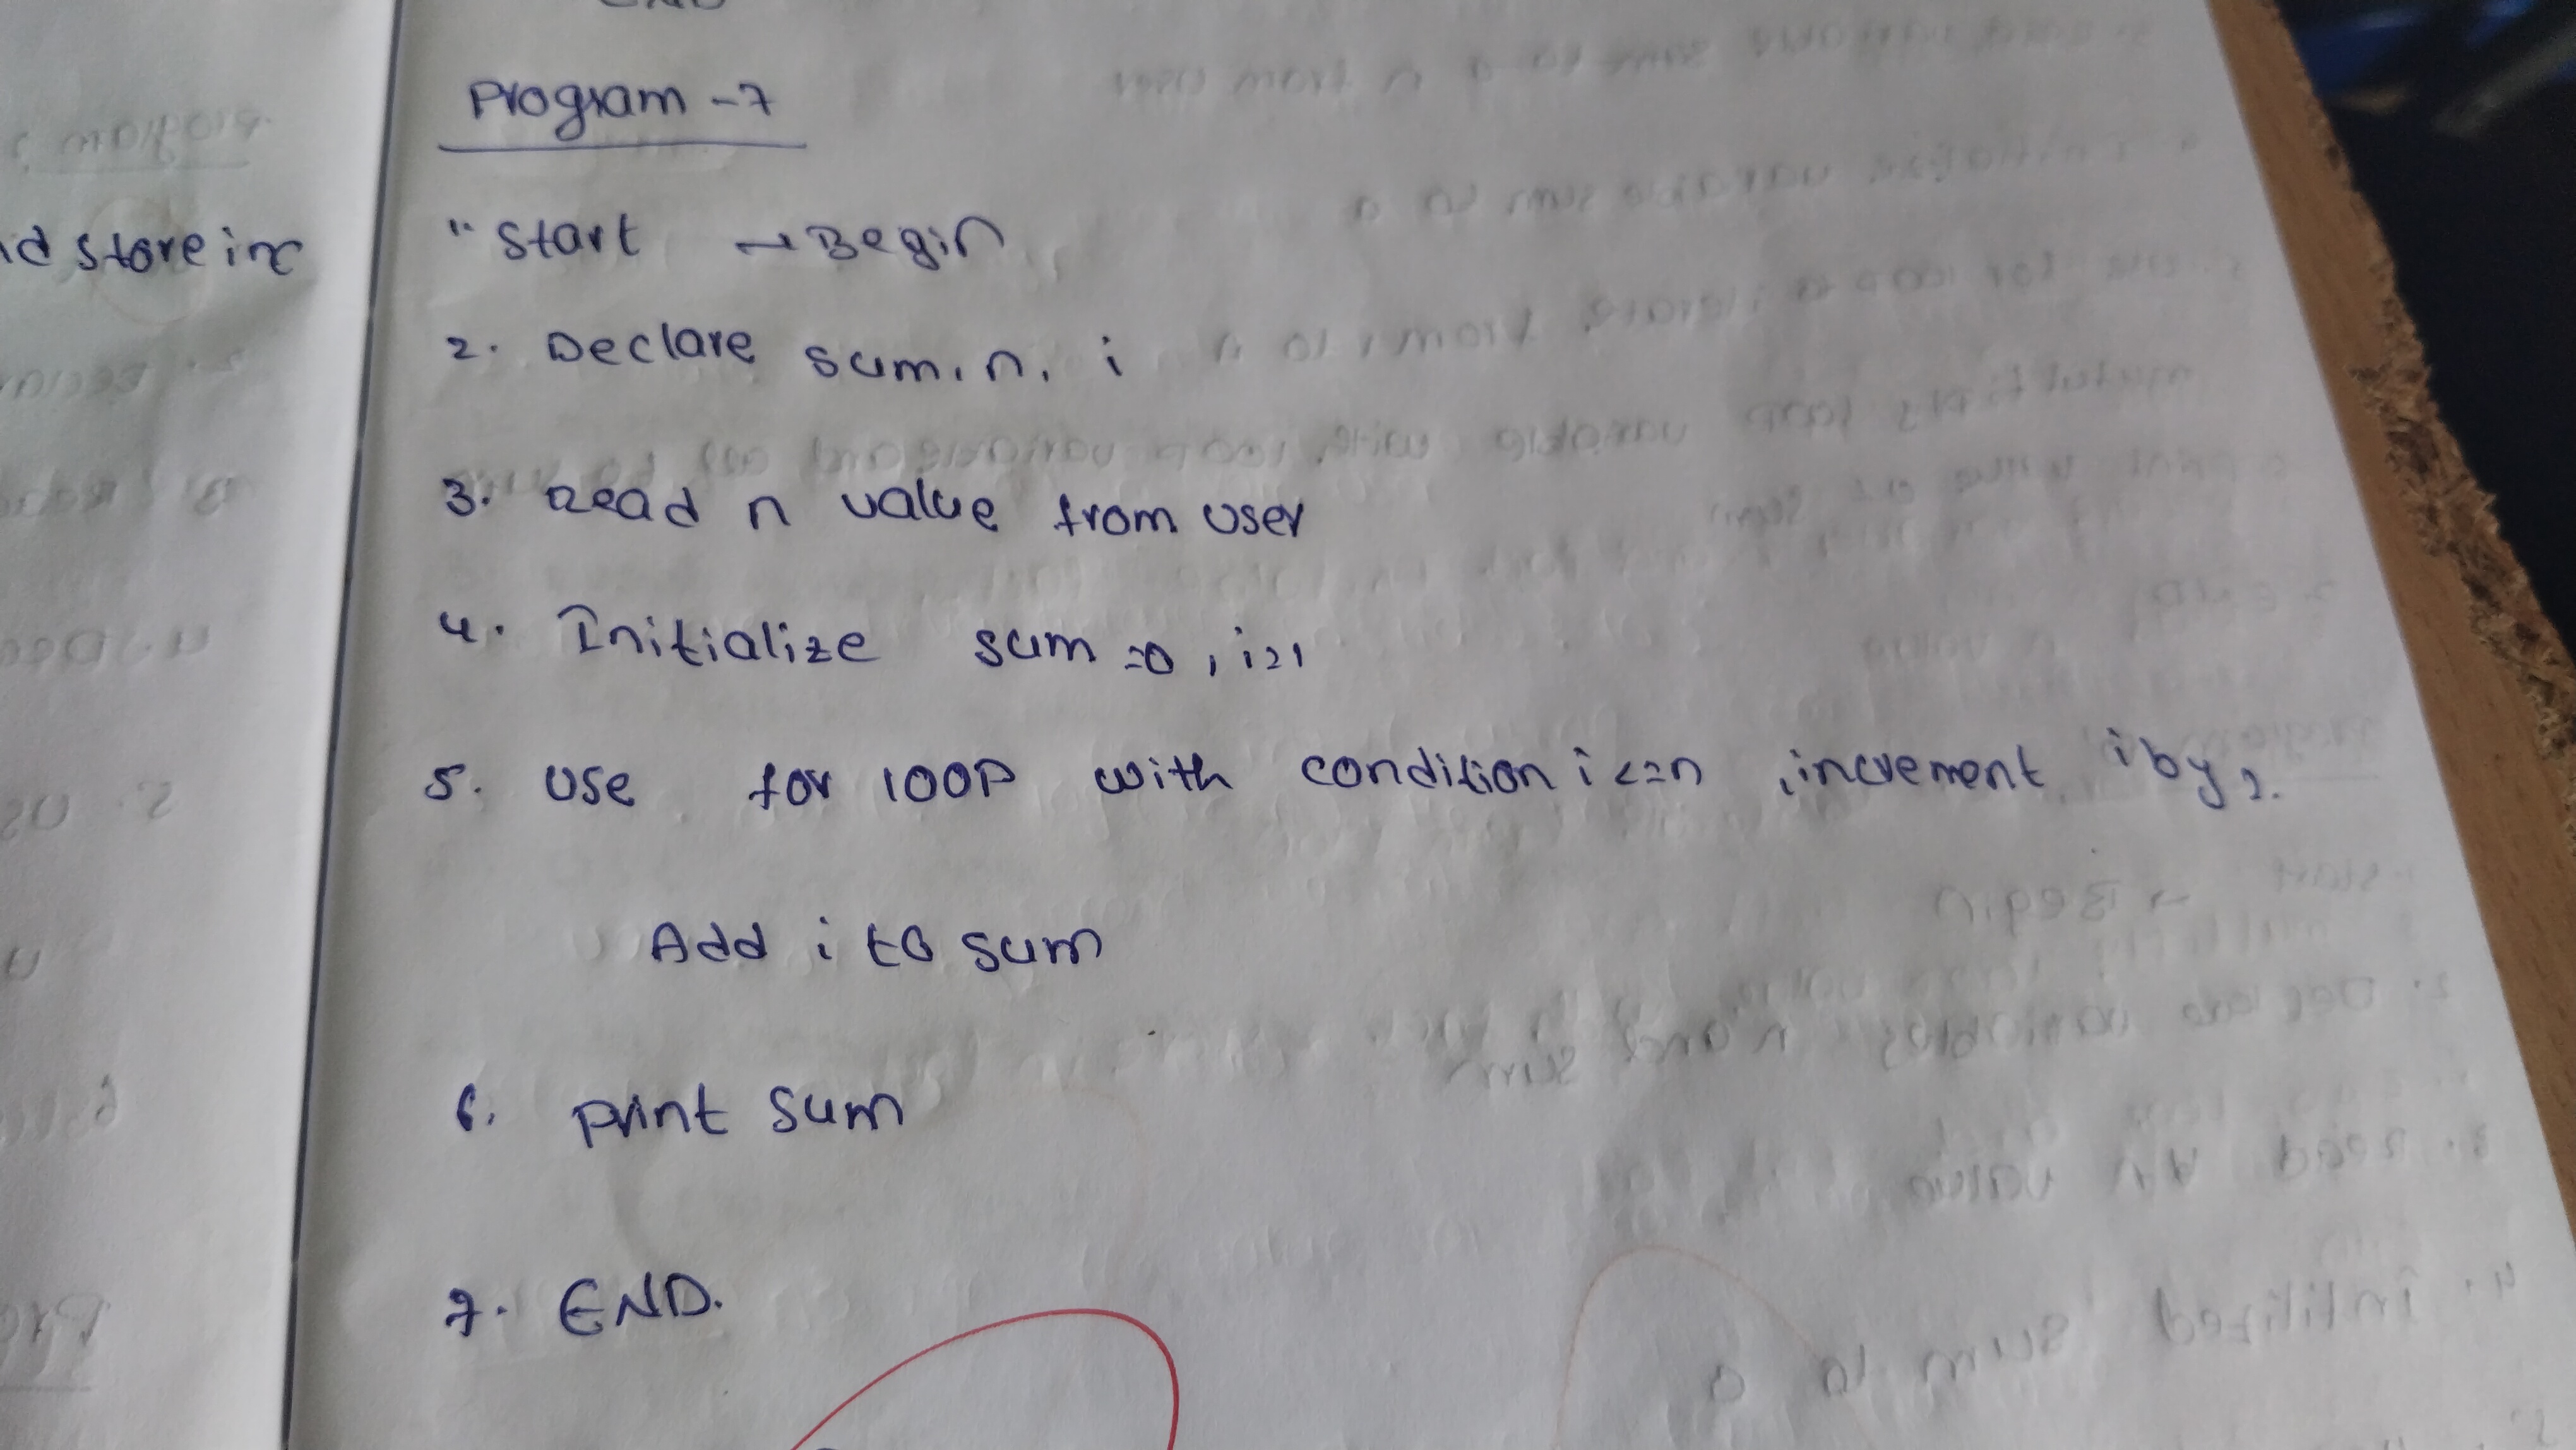 Program -7
id store in x
" Start → Begin
2. Declare sum, n, i
3. Read n value from user
4. Initialize sum =0, i=1
5. Use for loop with condition i<=n, increment i by 2.
Add i to sum
6. print sum
7. END.